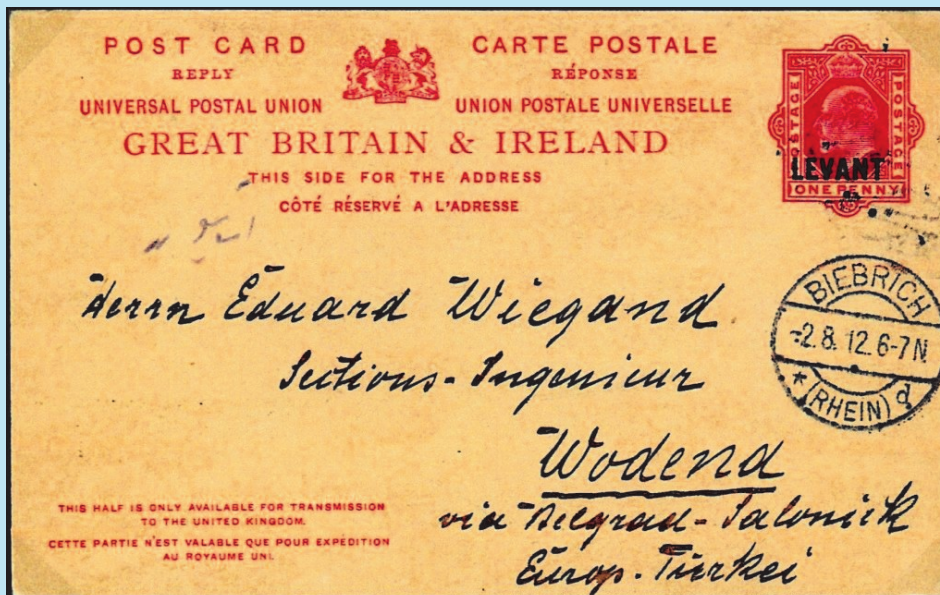 POST CARD
REPLY
UNIVERSAL POSTAL UNION
CARTE POSTALE
RÉPONSE
UNION POSTALE UNIVERSELLE
GREAT BRITAIN & IRELAND
THIS SIDE FOR THE ADDRESS
CÔTÉ RÉSERVÉ A L'ADRESSE
POSTAGE
POSTAGE
LEVANT
ONE PENNY
BIEBRICH
-2.8.12.6-7N.
* (RHEIN) d
Herrn Eduard Wiegand
Sections-Ingenieur
Wodena
via Belgrad-Salonick
Europ. Türkei
THIS HALF IS ONLY AVAILABLE FOR TRANSMISSION
TO THE UNITED KINGDOM.
CETTE PARTIE N'EST VALABLE QUE POUR EXPÉDITION
AU ROYAUME UNI.